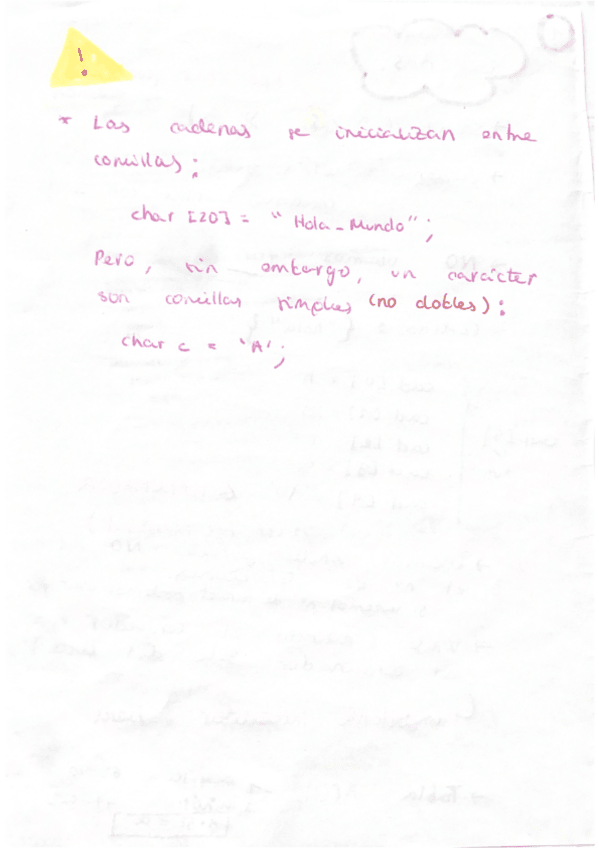 !
* Las cadenas se inicializan entre
comillas:
char [20] = "Hola_Mundo";
Pero, sin embargo, un carácter
son comillas simples (no dobles):
char c = 'A';